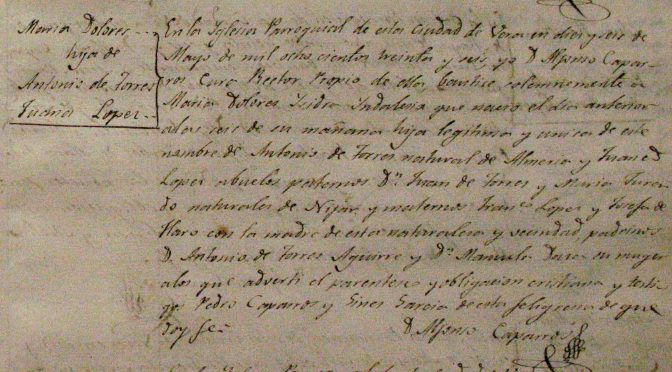 Maria Dolores
hija de
Antonio de Torres
Juana Lopez
En la Iglesia Parroquial de esta Ciudad de Vera en diez y seis de
Mayo de mil ocho cientos treinta y seis, yo D. Alfonso Capar
ros Cura Rector Propio de ella bautice solemnemente a
Maria Dolores Isidra Indalesia que nacio el dia anterior
a las seis de su mañana hija legitima y unica de este
nombre de Antonio de Torres natural de Almeria y Juana
Lopez abuelos paternos Dn. Juan de Torres y Maria Jura
do naturales de Nijar, y maternos Franco Lopez y
Haro con la madre de esta naturaleza y vecindad, padrinos
D. Antonio de Torres Aguirre y Da. Manuela su muger
a los que adverti el parentesco y obligacion cristiana y testi
gos Pedro Caparros y Gines Garcia de esta feligresia de que
doy fe=
D. Alfonso Caparros